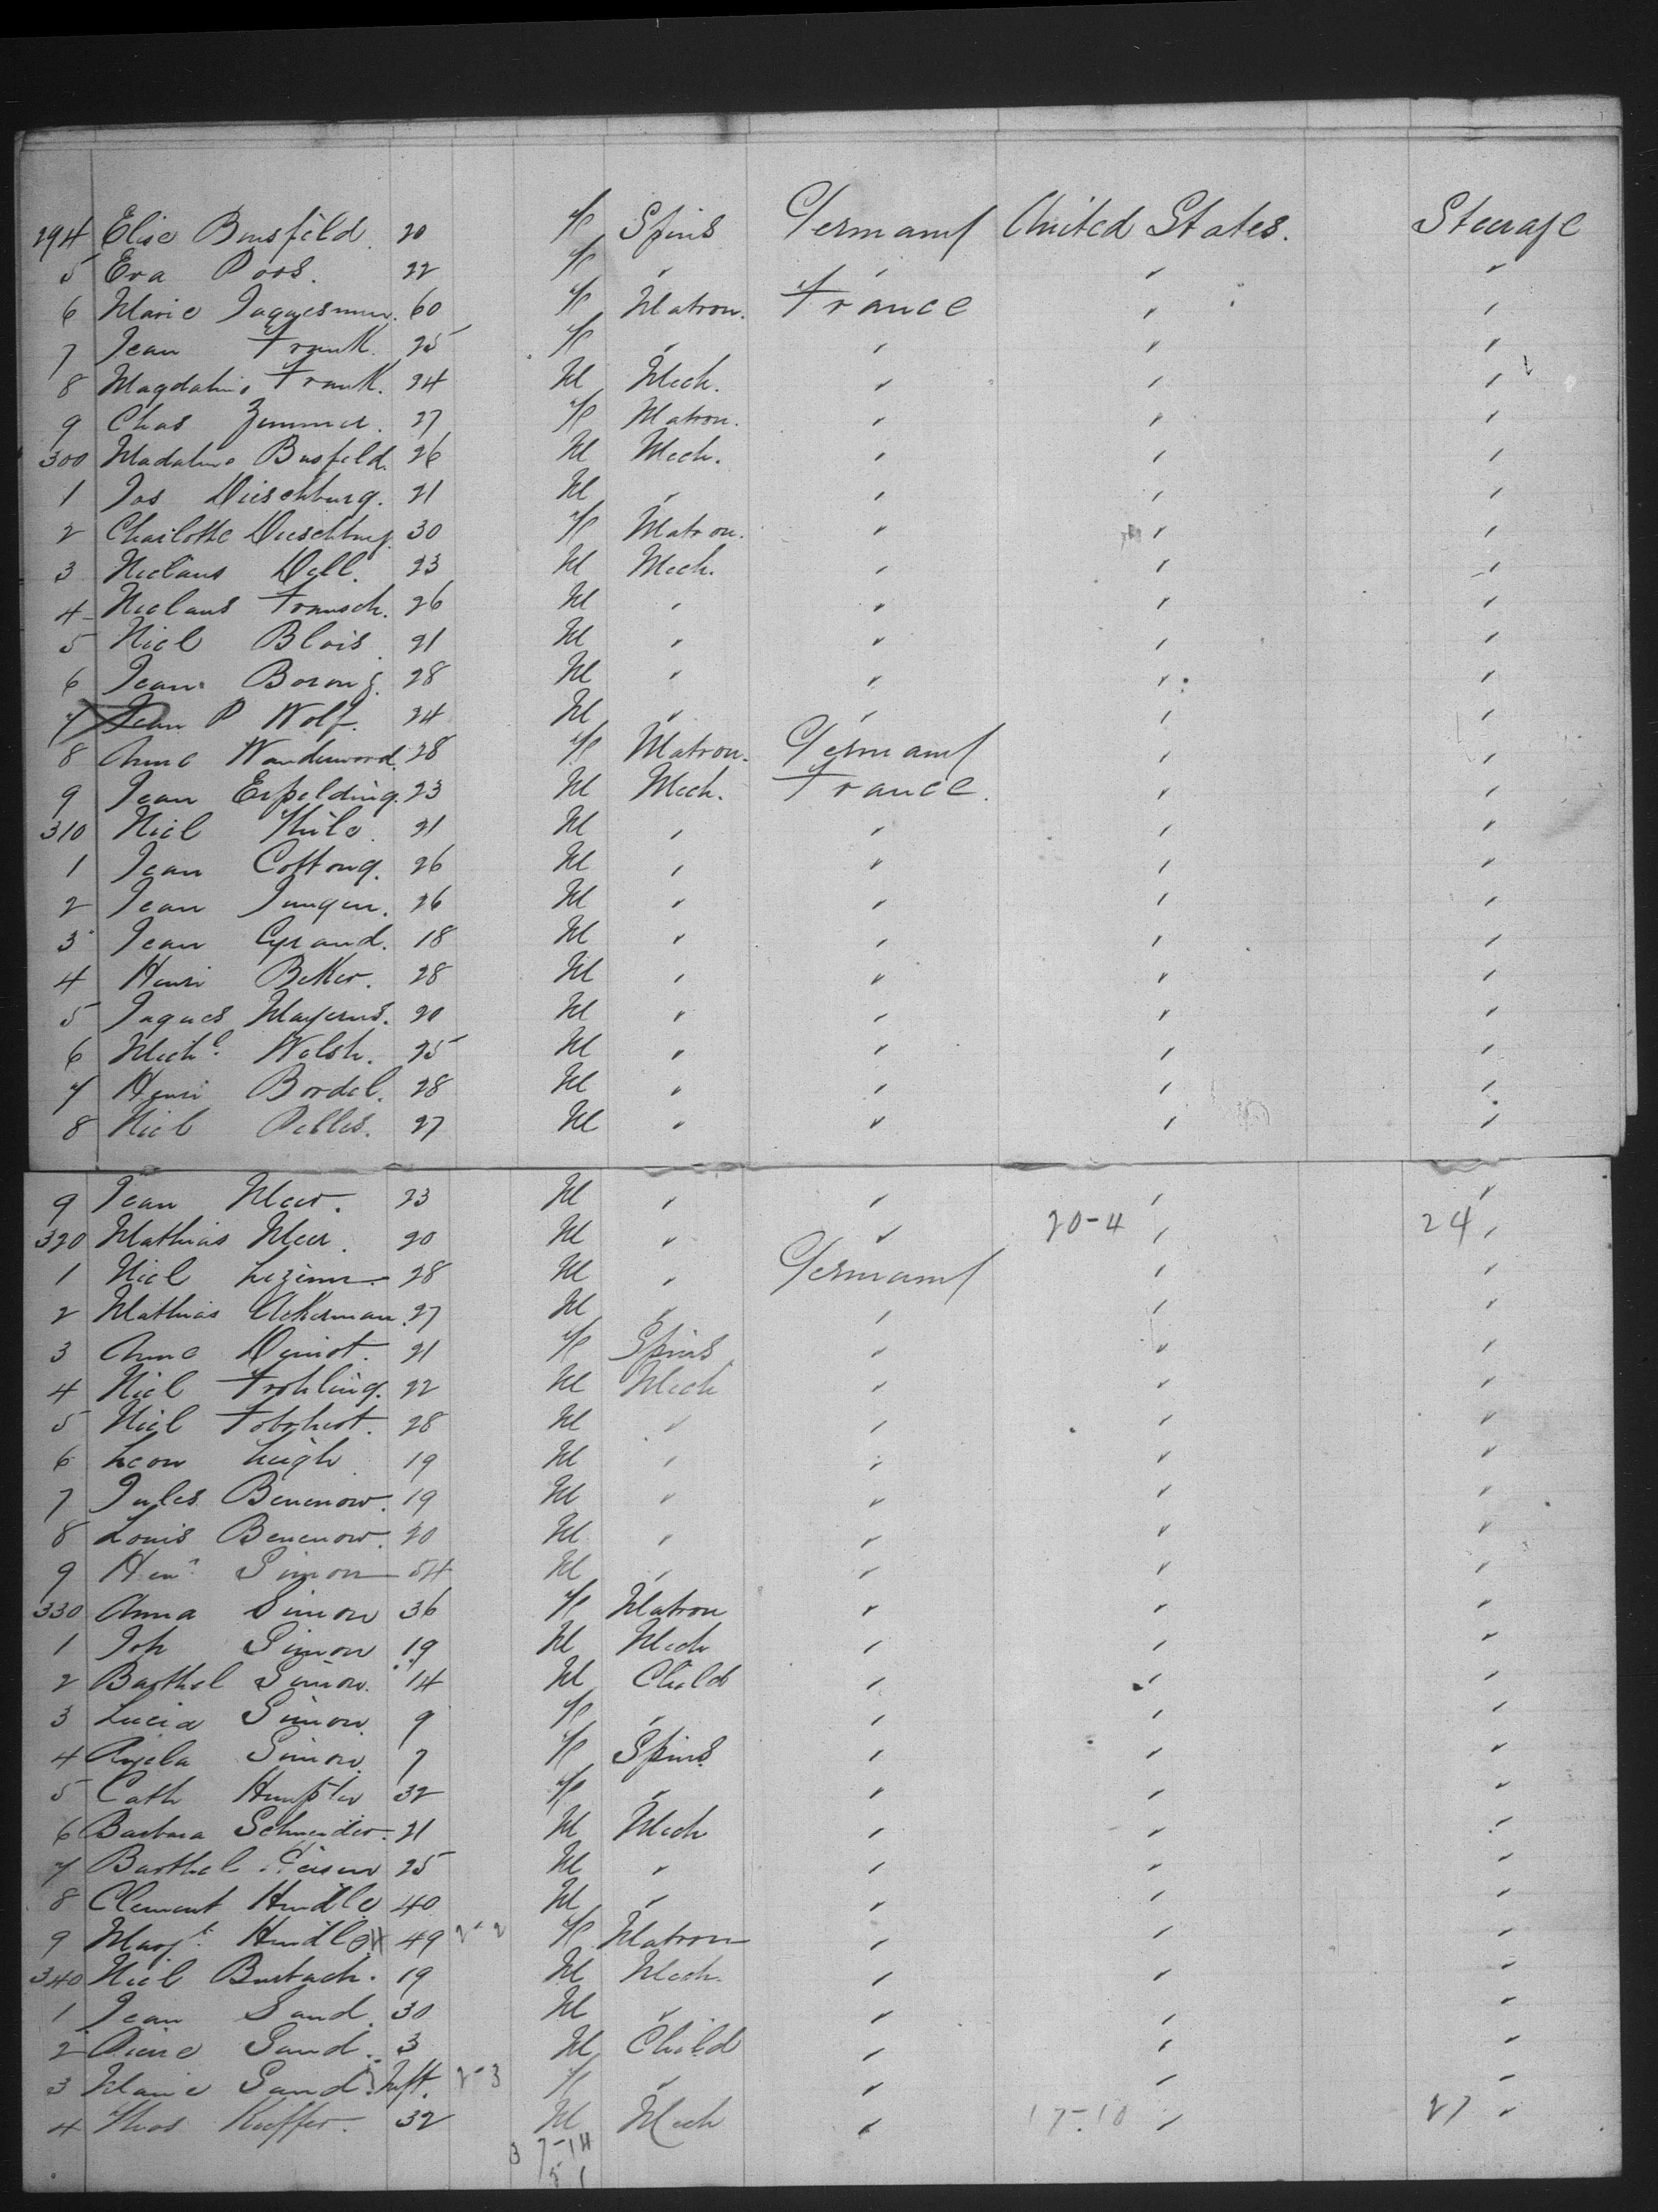 294 Elise Bousfeld. 20 F Spins Germany United States. Steerage
5 Eva Poos. 22 F " " " "
6 Marie Jaquesmin. 60 F Matron. France " "
7 Jean Frank. 25 F " " " "
8 Magdalin Frank. 24 M Mech. " " "
9 Chas Zimmer. 27 F Matron. " " "
300 Madaline Busfeld. 26 M Mech. " " "
1 Jos Dieschburg. 21 M " " " "
2 Charlotte Dieschburg 30 F Matron. " " "
3 Niclaus Dell. 23 M Mech. " " "
4 Niclaus Frausch. 26 M " " " "
5 Nicl Blais. 21 M " " " "
6 Jean Borong. 28 M " " " "
7 Jean P Wolf. 24 M " " " "
8 Anna Wanderword. 28 F Matron. Germany " "
9 Jean Erpelding. 23 M Mech. France. " "
310 Nicl Thile. 21 M " " " "
1 Jean Cottong. 26 M " " " "
2 Jean Jungen. 26 M " " " "
3 Jean Cyrand. 18 M " " " "
4 Henri Beker. 28 M " " " "
5 Jaques Mayerus. 20 M " " " "
6 Michl. Welsh. 25 M " " " "
7 Henri Bordel. 28 M " " " "
8 Nicl Pelles. 27 M " " " "
9 Jean Meer. 23 M " " " "
320 Mathias Meer. 20 M " " 20-4 " 24 "
1 Nicl 28 M " Germany " "
2 Mathias Ackerman. 27 M " " " "
3 Anna 21 F Spins " " "
4 Nicl Frohling. 22 M Mech " " "
5 Nicl 28 M " " " "
6 Leon Leigh 19 M " " " "
7 Jules Benenow. 19 M " " " "
8 Louis Benenow. 20 M " " " "
9 Simon 54 M " " " "
330 Anna Simon 36 F Matron " " "
1 Joh Simon 19 M Mech " " "
2 Barthel Simon. 14 M Child " " "
3 Lucia Simon. 9 F " " " "
4 Angela Simon. 7 F Spins. " " "
5 Cath 32 F " " " "
6 Barbara Schneider. 21 M Mech " " "
7 Barthel 25 M " " " "
8 Clement Hindle 40 M " " " "
9 Margt. Hindle 49 2-2 F Matron " " "
340 Nicl Burbach. 19 M Mech. " " "
1 Jean Sand. 30 M " " " "
2 Pierre Sand. 3 M Child " " "
3 Marie Sand. Inft. 2-3 F " " " "
4 Thos Kieffer. 32 M Mech " 17-10 " 27 "
3 7-14
5 1